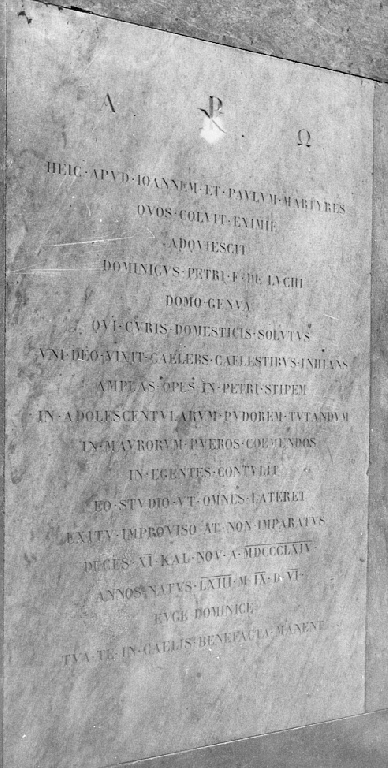 Α ☧ Ω
HEIC · APVD · IOANNEM · ET · PAVLVM · MARTYRES
QVOS · COLVIT · EXIMIE
ADQVIESCIT
DOMINICVS · PETRI · F · DE LVCHI
DOMO · GENVA
QVI · CVRIS · DOMESTICIS · SOLVTVS
VNI · DEO · VIXIT · CAELEBS · CAELESTIBVS · INHIANS
AMPLAS · OPES · IN · PETRI · STIPEM
IN · ADOLESCENTVLARVM · PVDOREM · TVTANDVM
IN · MAVRORVM · PVEROS · COEMENDOS
IN · EGENTES · CONTVLIT
EO · STVDIO · VT · OMNES · LATERET
EXITV · IMPROVISO · AT · NON · IMPARATVS
XI · KAL · NOV · A · MDCCCLXIV
ANNOS · NATVS · LXIII · M · IX · D · VI ·
EVGE · DOMINICE
TVA · TE · IN · CAELIS · BENEFACTA · MANENT